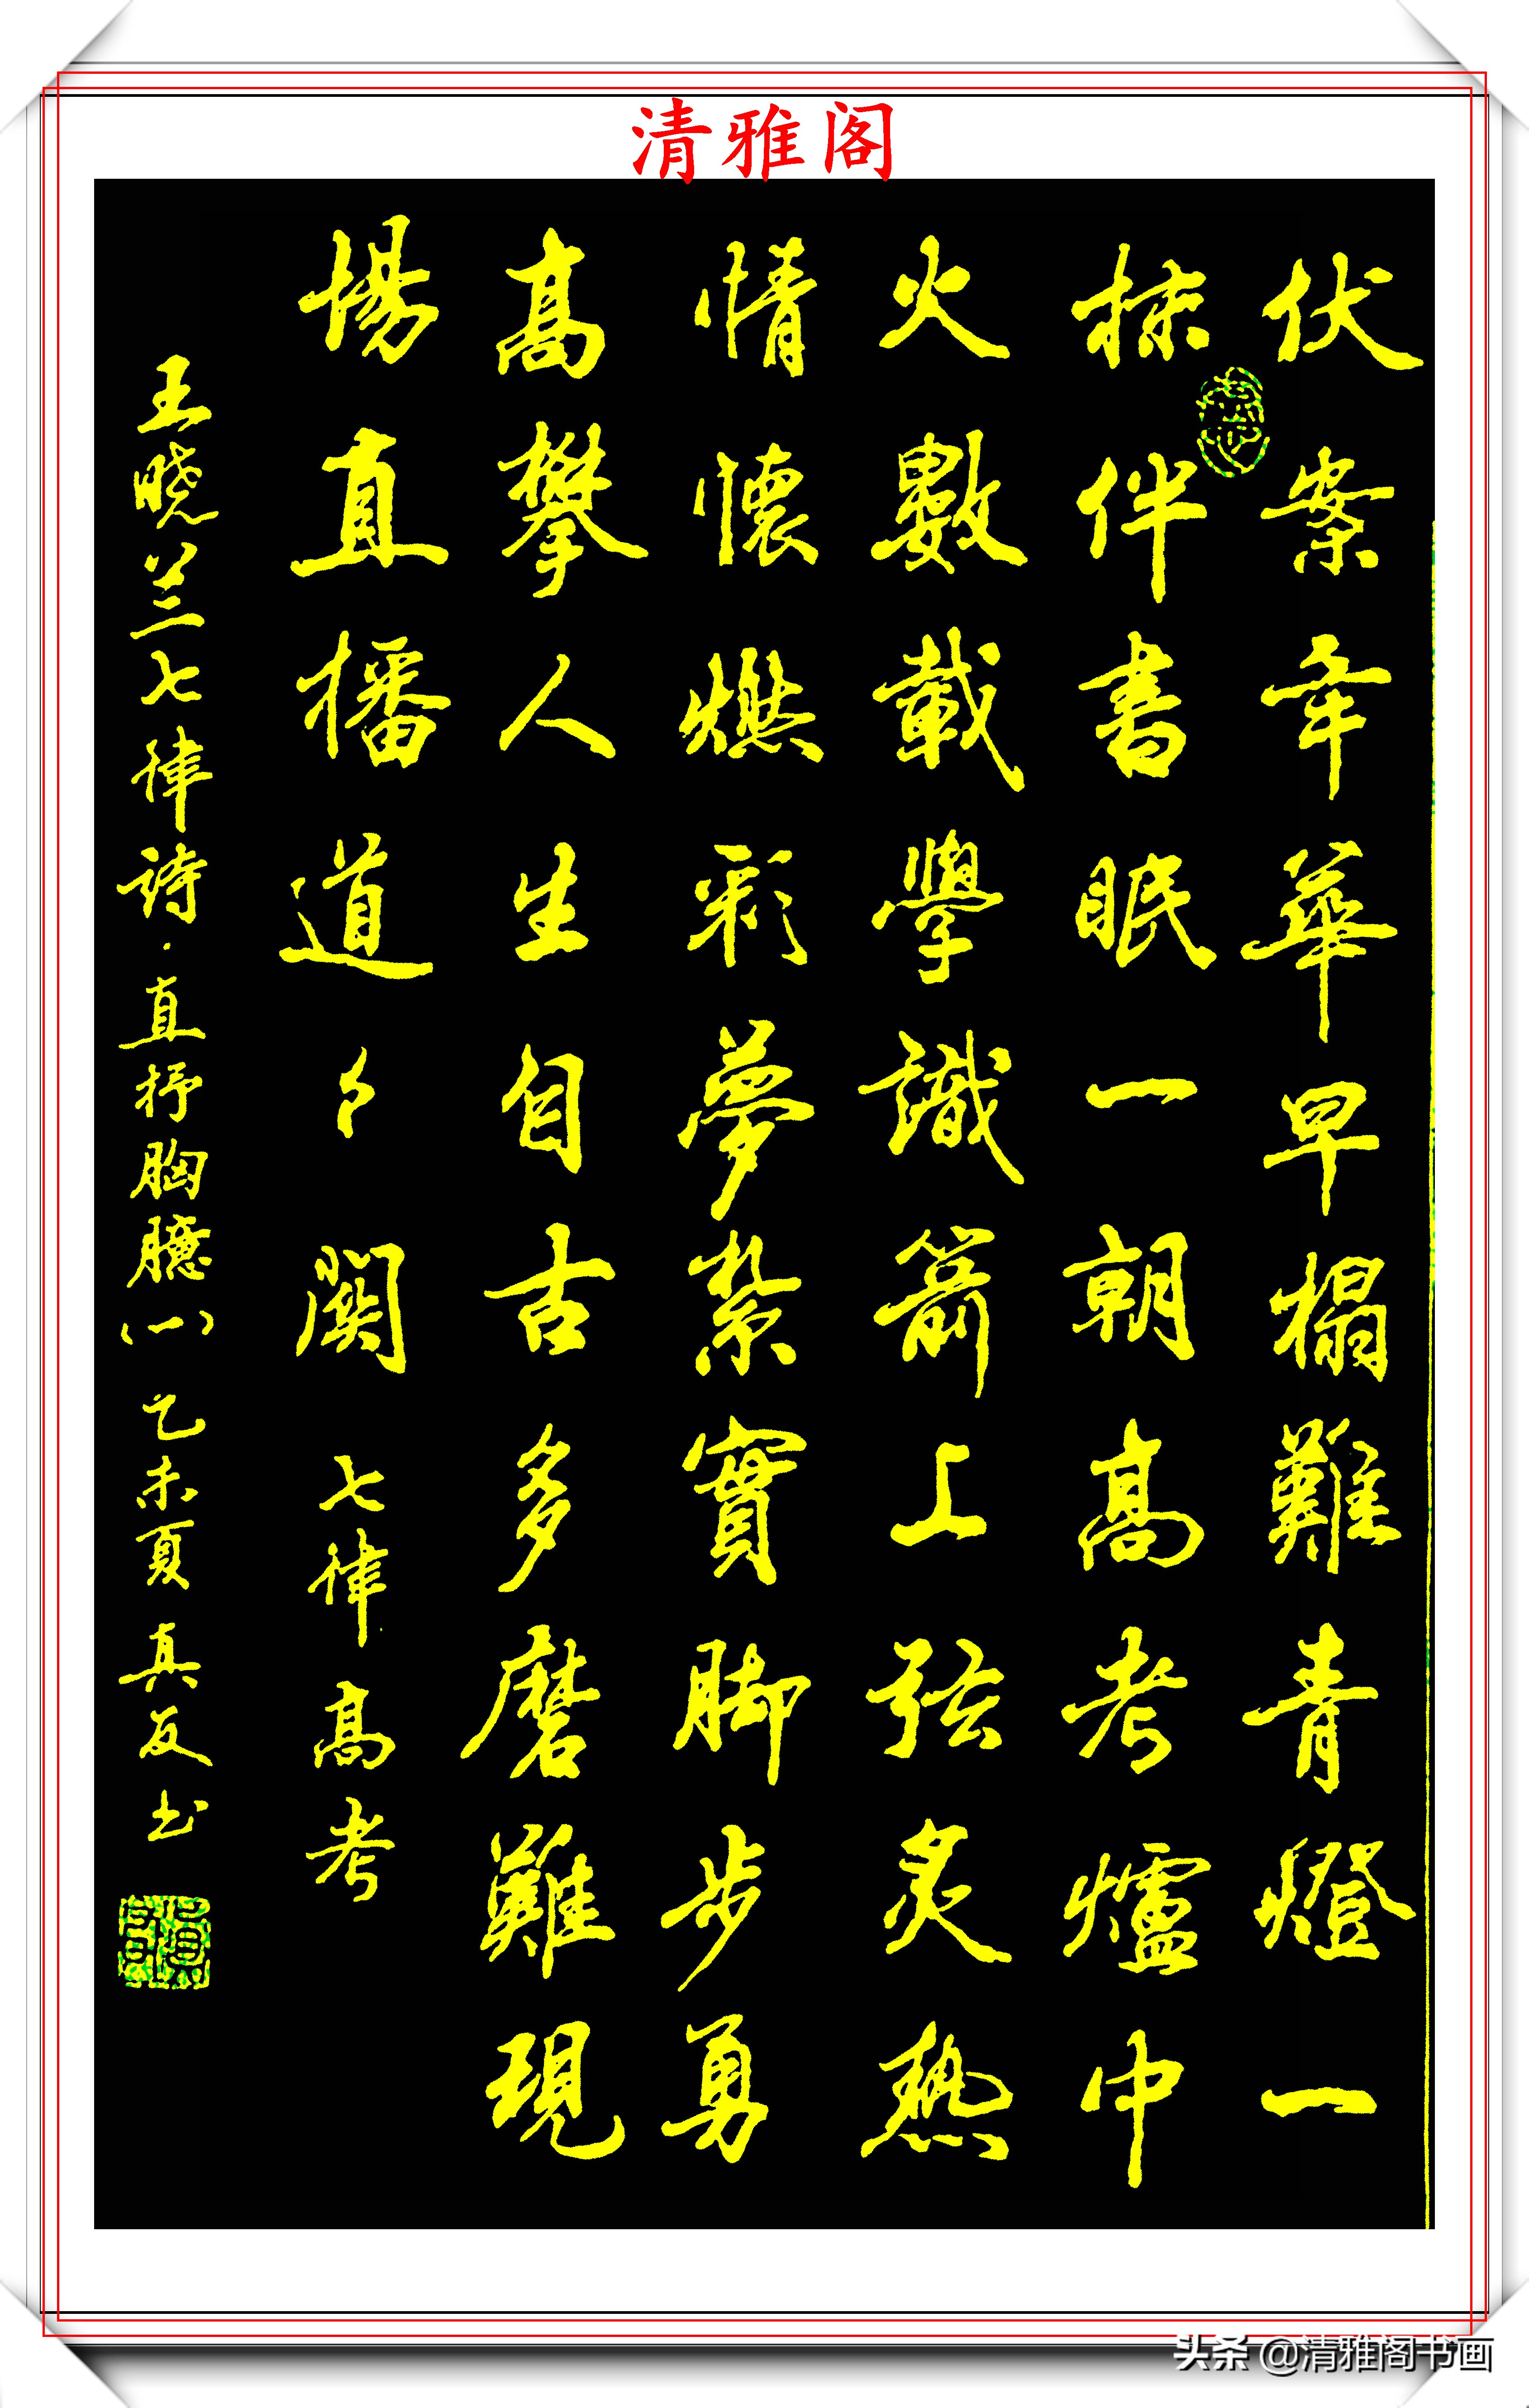 清雅阁
伏案年華早榻難青燈一
抹伴書眠一朝高考爐中
火數載學識箭上弦炙熱
情懷燃彩夢紮實脚步勇
高攀人生自古多磨難現
場直播道〻關 七律高考
王晓兰七律詩·直抒胸臆(一) 乙未夏真友书
头条 @清雅阁书画